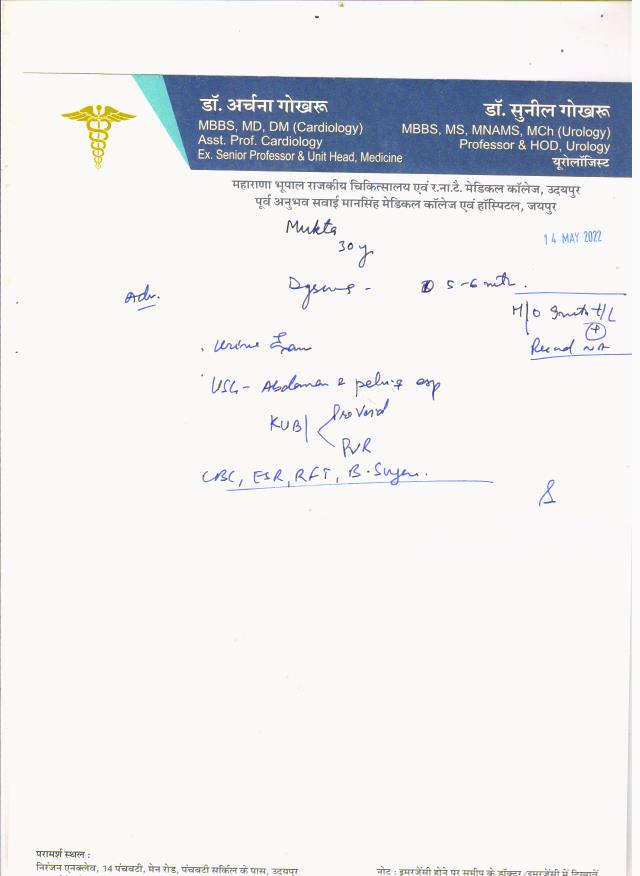 डॉ. अर्चना गोखरू
MBBS, MD, DM (Cardiology)
Asst. Prof. Cardiology
Ex. Senior Professor & Unit Head, Medicine
डॉ. सुनील गोखरू
MBBS, MS, MNAMS, MCh (Urology)
Professor & HOD, Urology
यूरोलॉजिस्ट
महाराणा भूपाल राजकीय चिकित्सालय एवं र.ना.टै. मेडिकल कॉलेज, उदयपुर
पूर्व अनुभव सवाई मानसिंह मेडिकल कॉलेज एवं हॉस्पिटल, जयपुर
Mukta
30 y
14 MAY 2022
5-6 mth.
Adv.
H/O
+
Record NA
Urine Exam
USG - Abdomen & pelvis esp
KUB
Pre Void
PVR
CBC, ESR, RFT, B. Sugar.
परामर्श स्थल :
निरंजन एनक्लेव, 14 पंचवटी, मेन रोड, पंचवटी सर्किल के पास, उदयपुर
नोट : इमरजेंसी होने पर समीप के डॉक्टर/इमरजेंसी में दिखावें